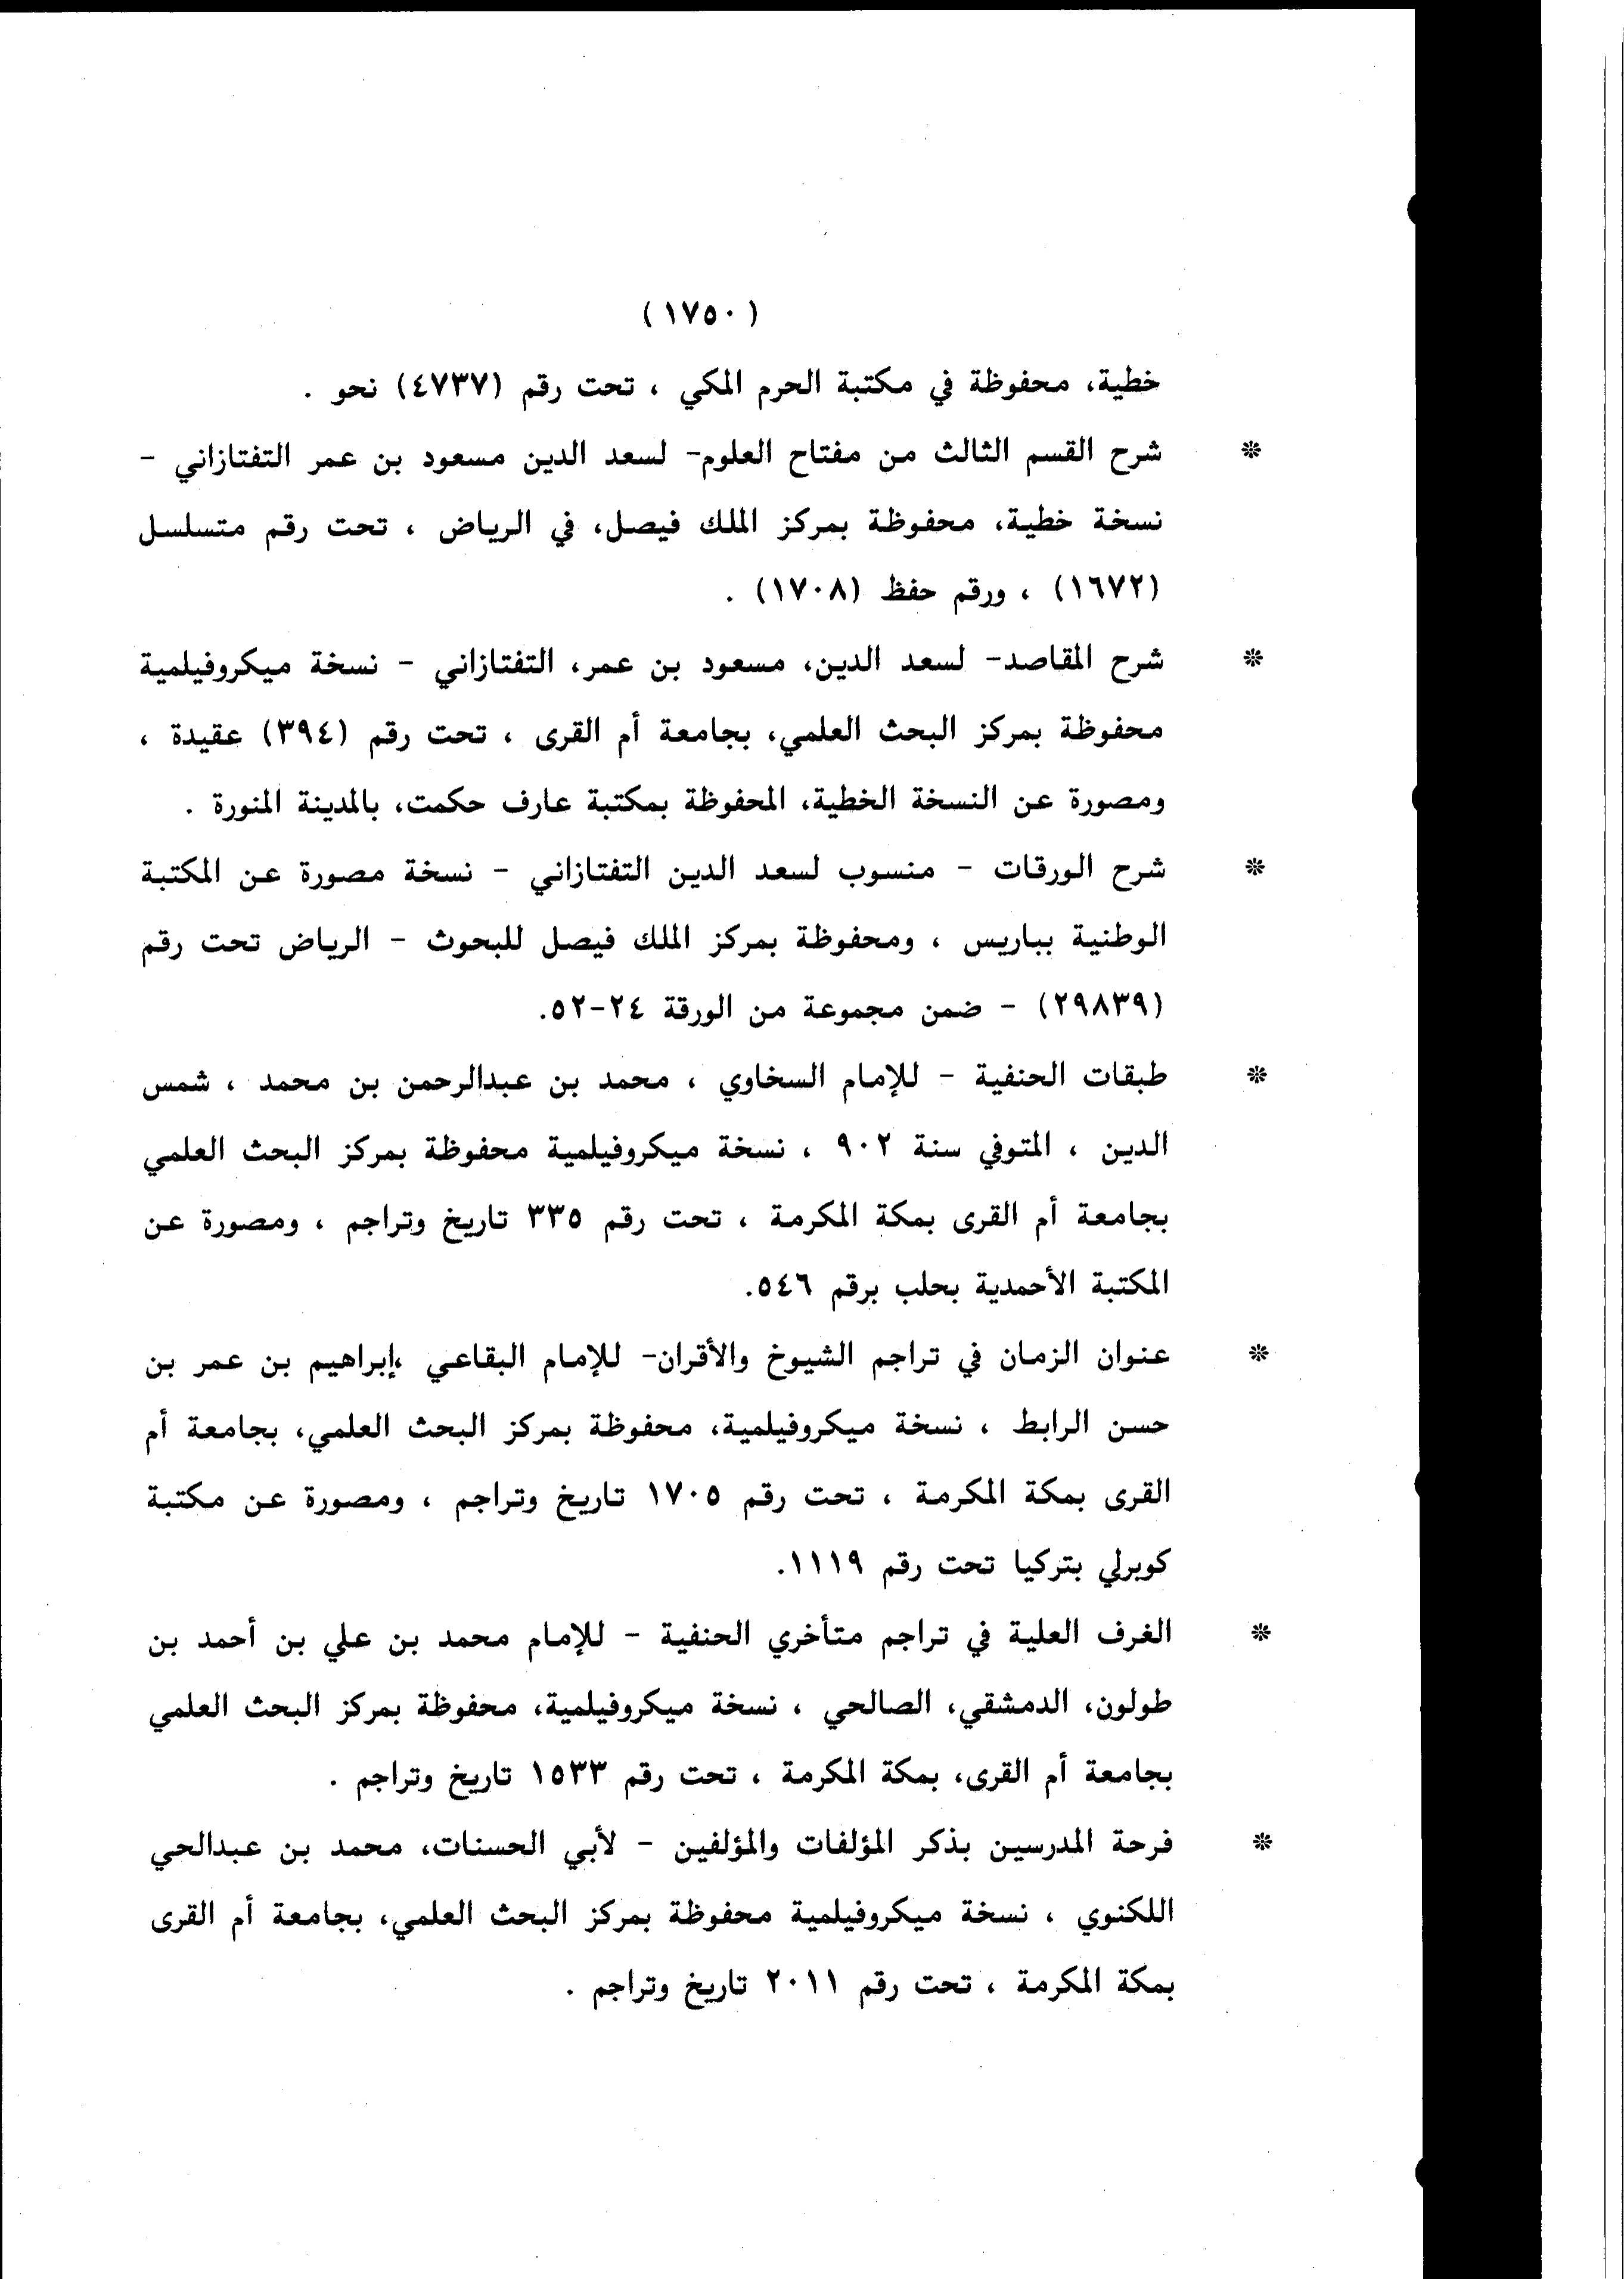 (١٧٥٠)
خطية، محفوظة في مكتبة الحرم المكي ، تحت رقم (٤٧٣٧) نحو .
* شرح القسم الثالث من مفتاح العلوم- لسعد الدين مسعود بن عمر التفتازاني -
نسخة خطية، محفوظة بمركز الملك فيصل، في الرياض ، تحت رقم متسلسل
(١٦٧٢) ، ورقم حفظ (١٧٠٨) .
* شرح المقاصد- لسعد الدين، مسعود بن عمر، التفتازاني - نسخة ميكروفيلمية
محفوظة بمركز البحث العلمي، بجامعة أم القرى ، تحت رقم (٣٩٤) عقيدة ،
ومصورة عن النسخة الخطية، المحفوظة بمكتبة عارف حكمت، بالمدينة المنورة .
* شرح الورقات - منسوب لسعد الدين التفتازاني - نسخة مصورة عن المكتبة
الوطنية بباريس ، ومحفوظة بمركز الملك فيصل للبحوث - الرياض تحت رقم
(٢٩٨٣٩) - ضمن مجموعة من الورقة ٢٤-٥٢.
* طبقات الحنفية - للإمام السخاوي ، محمد بن عبدالرحمن بن محمد ، شمس
الدين ، المتوفي سنة ٩٠٢ ، نسخة ميكروفيلمية محفوظة بمركز البحث العلمي
بجامعة أم القرى بمكة المكرمة ، تحت رقم ٣٣٥ تاريخ وتراجم ، ومصورة عن
المكتبة الأحمدية بحلب برقم ٥٤٦.
* عنوان الزمان في تراجم الشيوخ والأقران- للإمام البقاعي ،إبراهيم بن عمر بن
حسن الرابط ، نسخة ميكروفيلمية، محفوظة بمركز البحث العلمي، بجامعة أم
القرى بمكة المكرمة ، تحت رقم ١٧٠٥ تاريخ وتراجم ، ومصورة عن مكتبة
كوبرلي بتركيا تحت رقم ١١١٩.
* الغرف العلية في تراجم متأخري الحنفية - للإمام محمد بن علي بن أحمد بن
طولون، الدمشقي، الصالحي ، نسخة ميكروفيلمية، محفوظة بمركز البحث العلمي
بجامعة أم القرى، بمكة المكرمة ، تحت رقم ١٥٣٣ تاريخ وتراجم .
* فرحة المدرسين بذكر المؤلفات والمؤلفين - لأبي الحسنات، محمد بن عبدالحي
اللكنوي ، نسخة ميكروفيلمية محفوظة بمركز البحث العلمي، بجامعة أم القرى
بمكة المكرمة ، تحت رقم ٢٠١١ تاريخ وتراجم .